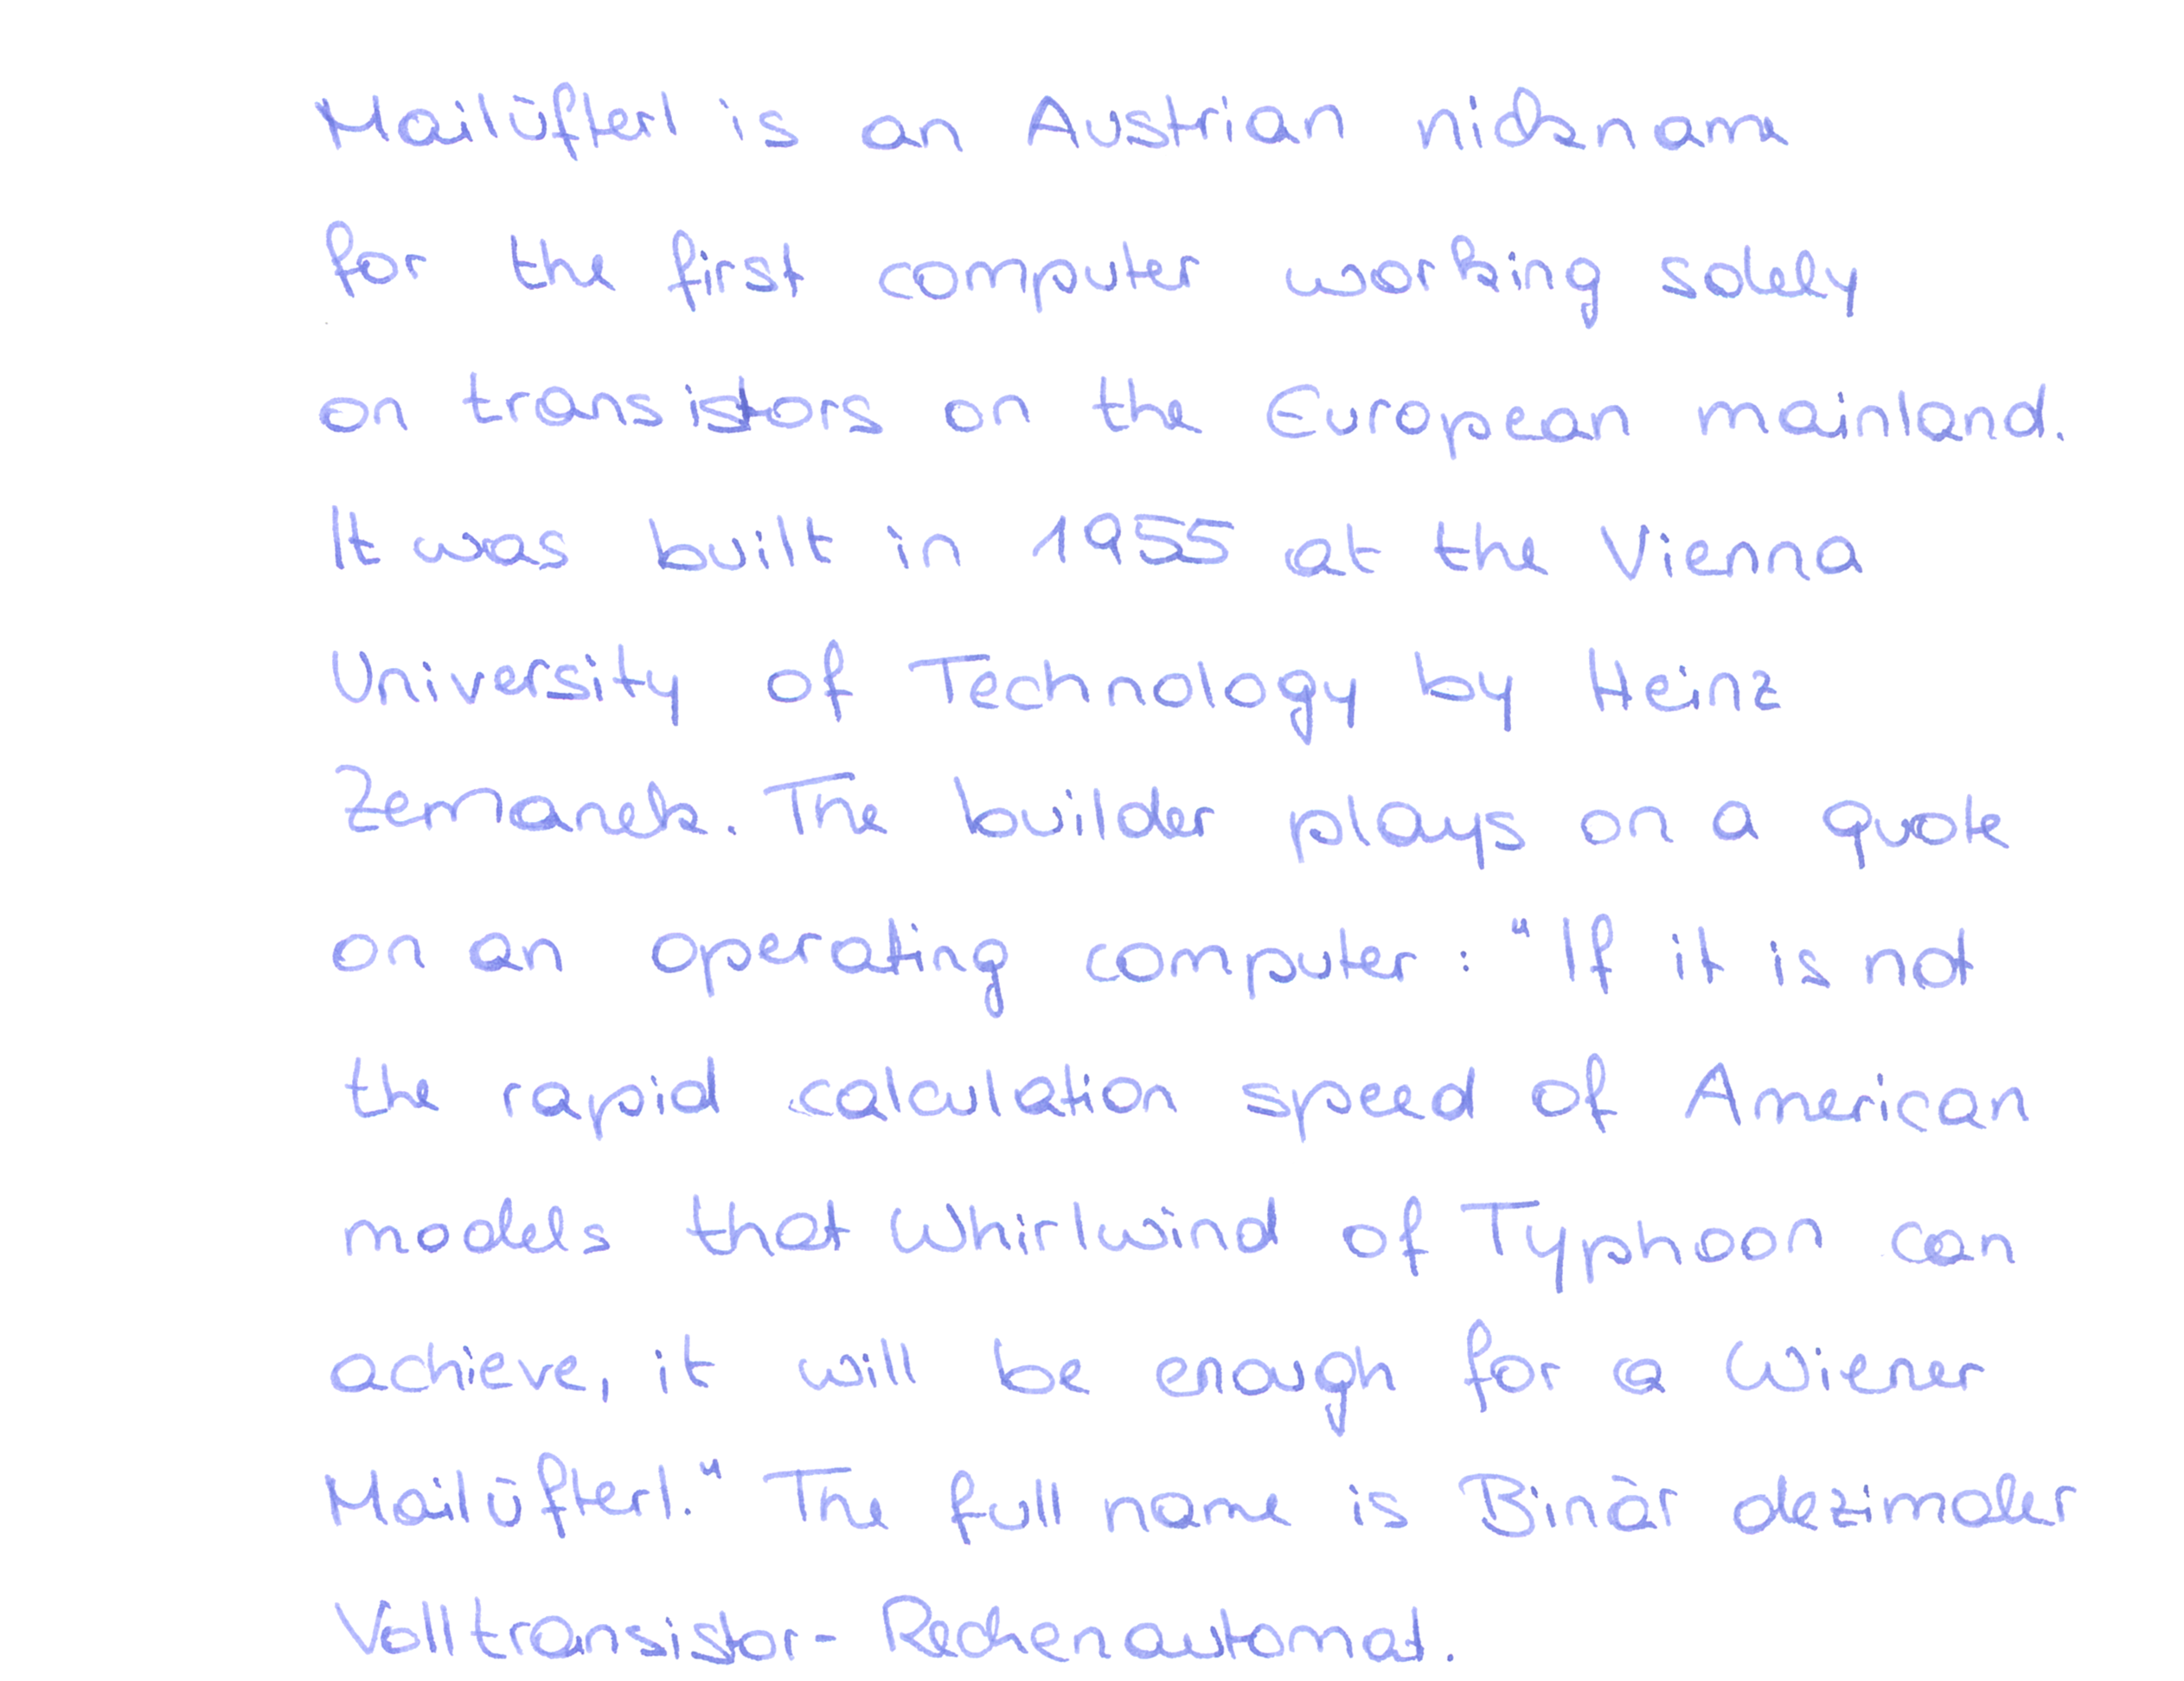 Mailüfterl is an Austrian nickname
for the first computer working solely
on transistors on the European mainland.
It was built in 1955 at the Vienna
University of Technology by Heinz
Zemanek. The builder plays on a quote
on an operating computer: "If it is not
the rapid calculation speed of American
models that Whirlwind of Typhoon can
achieve, it will be enough for a Wiener
Mailüfterl." The full name is Binär dezimaler
Volltransistor-Rechenautomat.